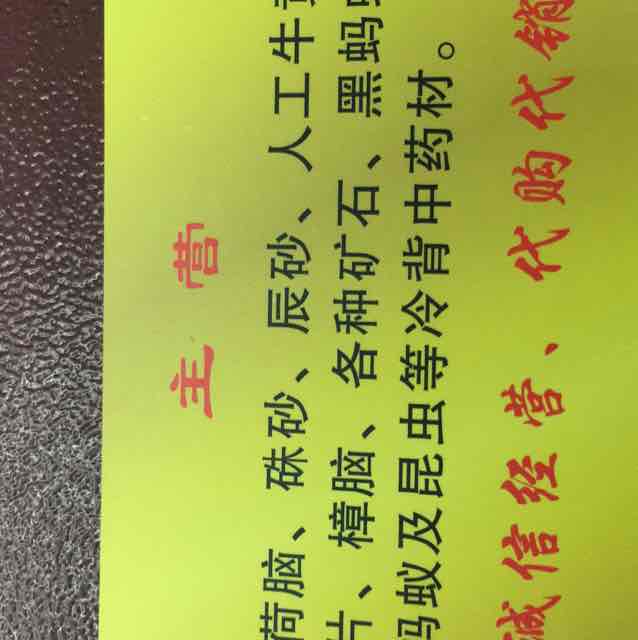 主营
荷脑、硃砂、辰砂、人工牛
片、樟脑、各种矿石、黑蚂
蚂蚁及昆虫等冷背中药材。
诚信经营、代购代销